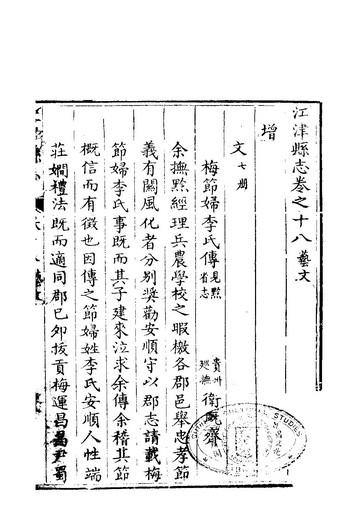 江津縣志卷之十八 藝文
增
文 七冊
梅節婦李氏傳 見黔省志 貴州巡撫 衛既齊
余撫黔經理兵農學校之暇檄各郡邑舉忠孝節
義有關風化者分別奬勸安順守以郡志請載梅
節婦李氏事既而其子建來泣求余傳余稽其節
概信而有徵也因傳之節婦姓李氏安順人性端
莊嫻禮法既而適同郡已夘拔貢梅運昌昌尹蜀